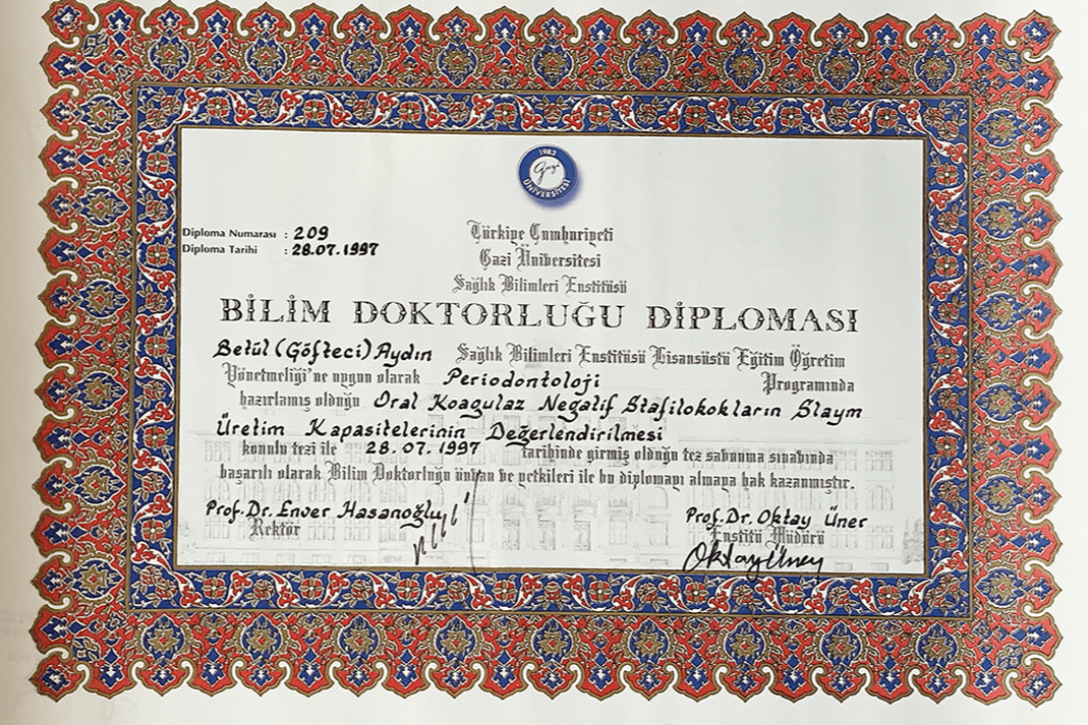 1982
Gazi
ÜNİVERSİTESİ
Diploma Numarası : 209
Diploma Tarihi : 28.07.1997
Türkiye Cumhuriyeti
Gazi Üniversitesi
Sağlık Bilimleri Enstitüsü
BİLİM DOKTORLUĞU DİPLOMASI
Betül (Göfteci) Aydın Sağlık Bilimleri Enstitüsü Lisansüstü Eğitim Öğretim
Yönetmeliği'ne uygun olarak Periodontoloji Programında
hazırlamış olduğu Oral Koagulaz Negatif Stafilokokların Slaym
Üretim Kapasitelerinin Değerlendirilmesi
konulu tezi ile 28.07.1997 tarihinde girmiş olduğu tez savunma sınavında
başarılı olarak Bilim Doktorluğu ünvan ve yetkileri ile bu diplomayı almaya hak kazanmıştır.
Prof. Dr. Enver Hasanoğlu
Rektör
Prof. Dr. Oktay Üner
Enstitü Müdürü
Oktay Üner